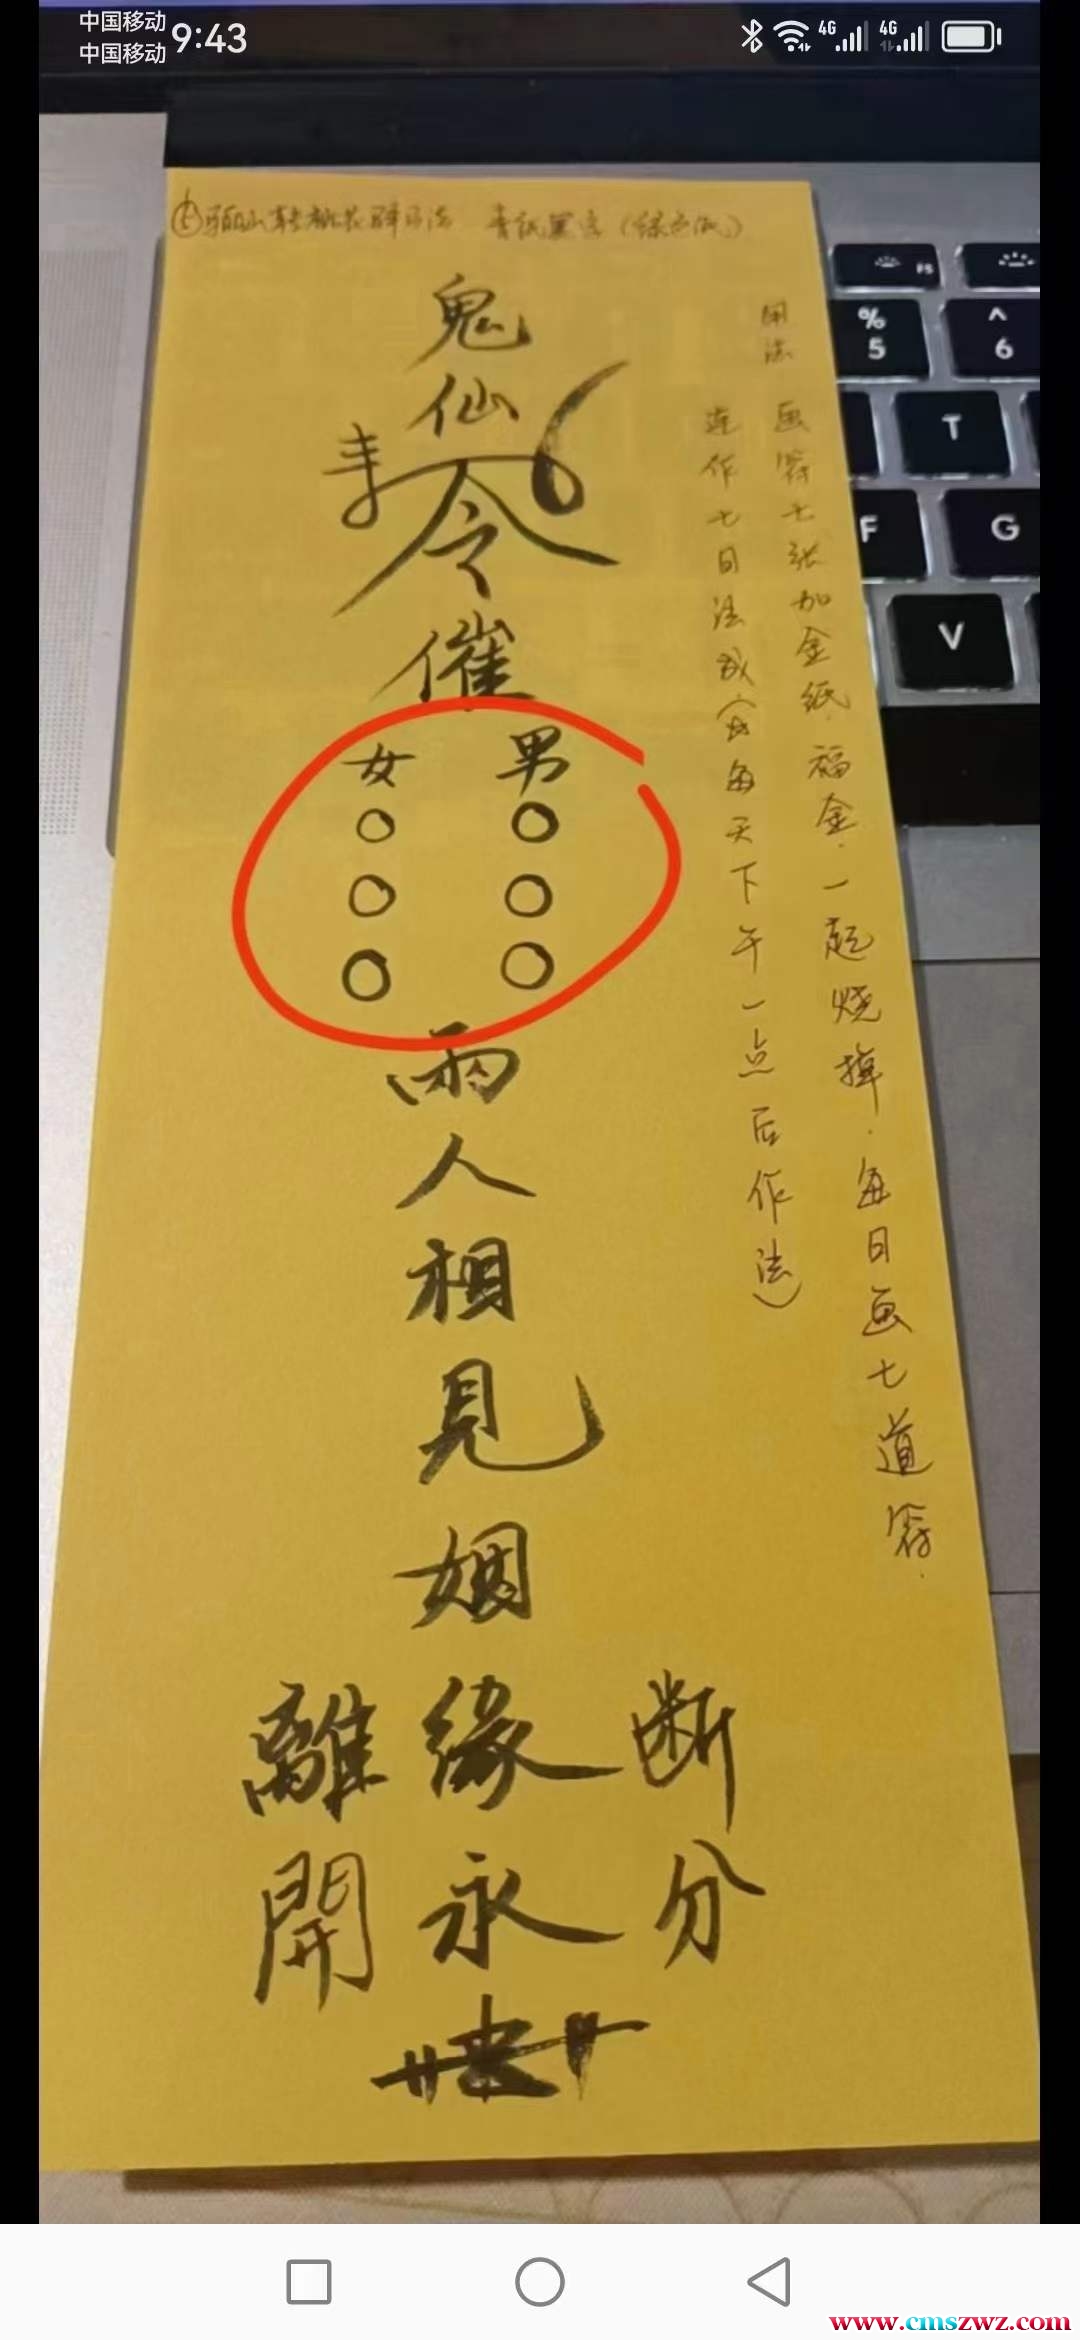 中国移动
中国移动
9:43
4G
4G
青紙黑字
鬼
仙
令
催
男
○
○
○
女
○
○
○
兩
人
相
見
姻
緣
永
断
分
離
開
用法
画符七张加金纸.福金.一起烧掉.每日画七道符.
连作七日法成
每天下午一点后作法)
F5
%
5
^
6
T
F
G
V
www.cmszwz.com